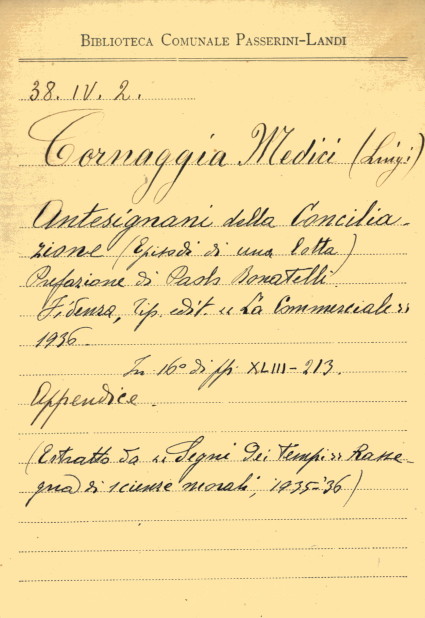 BIBLIOTECA COMUNALE PASSERINI-LANDI
38. IV. 2.
Cornaggia Medici (Luigi)
Antesignani della Concilia-
zione (Episodi di una lotta)
Prefazione di Paolo Bonatelli.
Fidenza, Tip. edit. "La Commerciale"
1936.
In 16° di pp. XLIII-213.
Appendice.
(Estratto da "Segni dei tempi" Rasse-
gna di scienze morali, 1935-36)